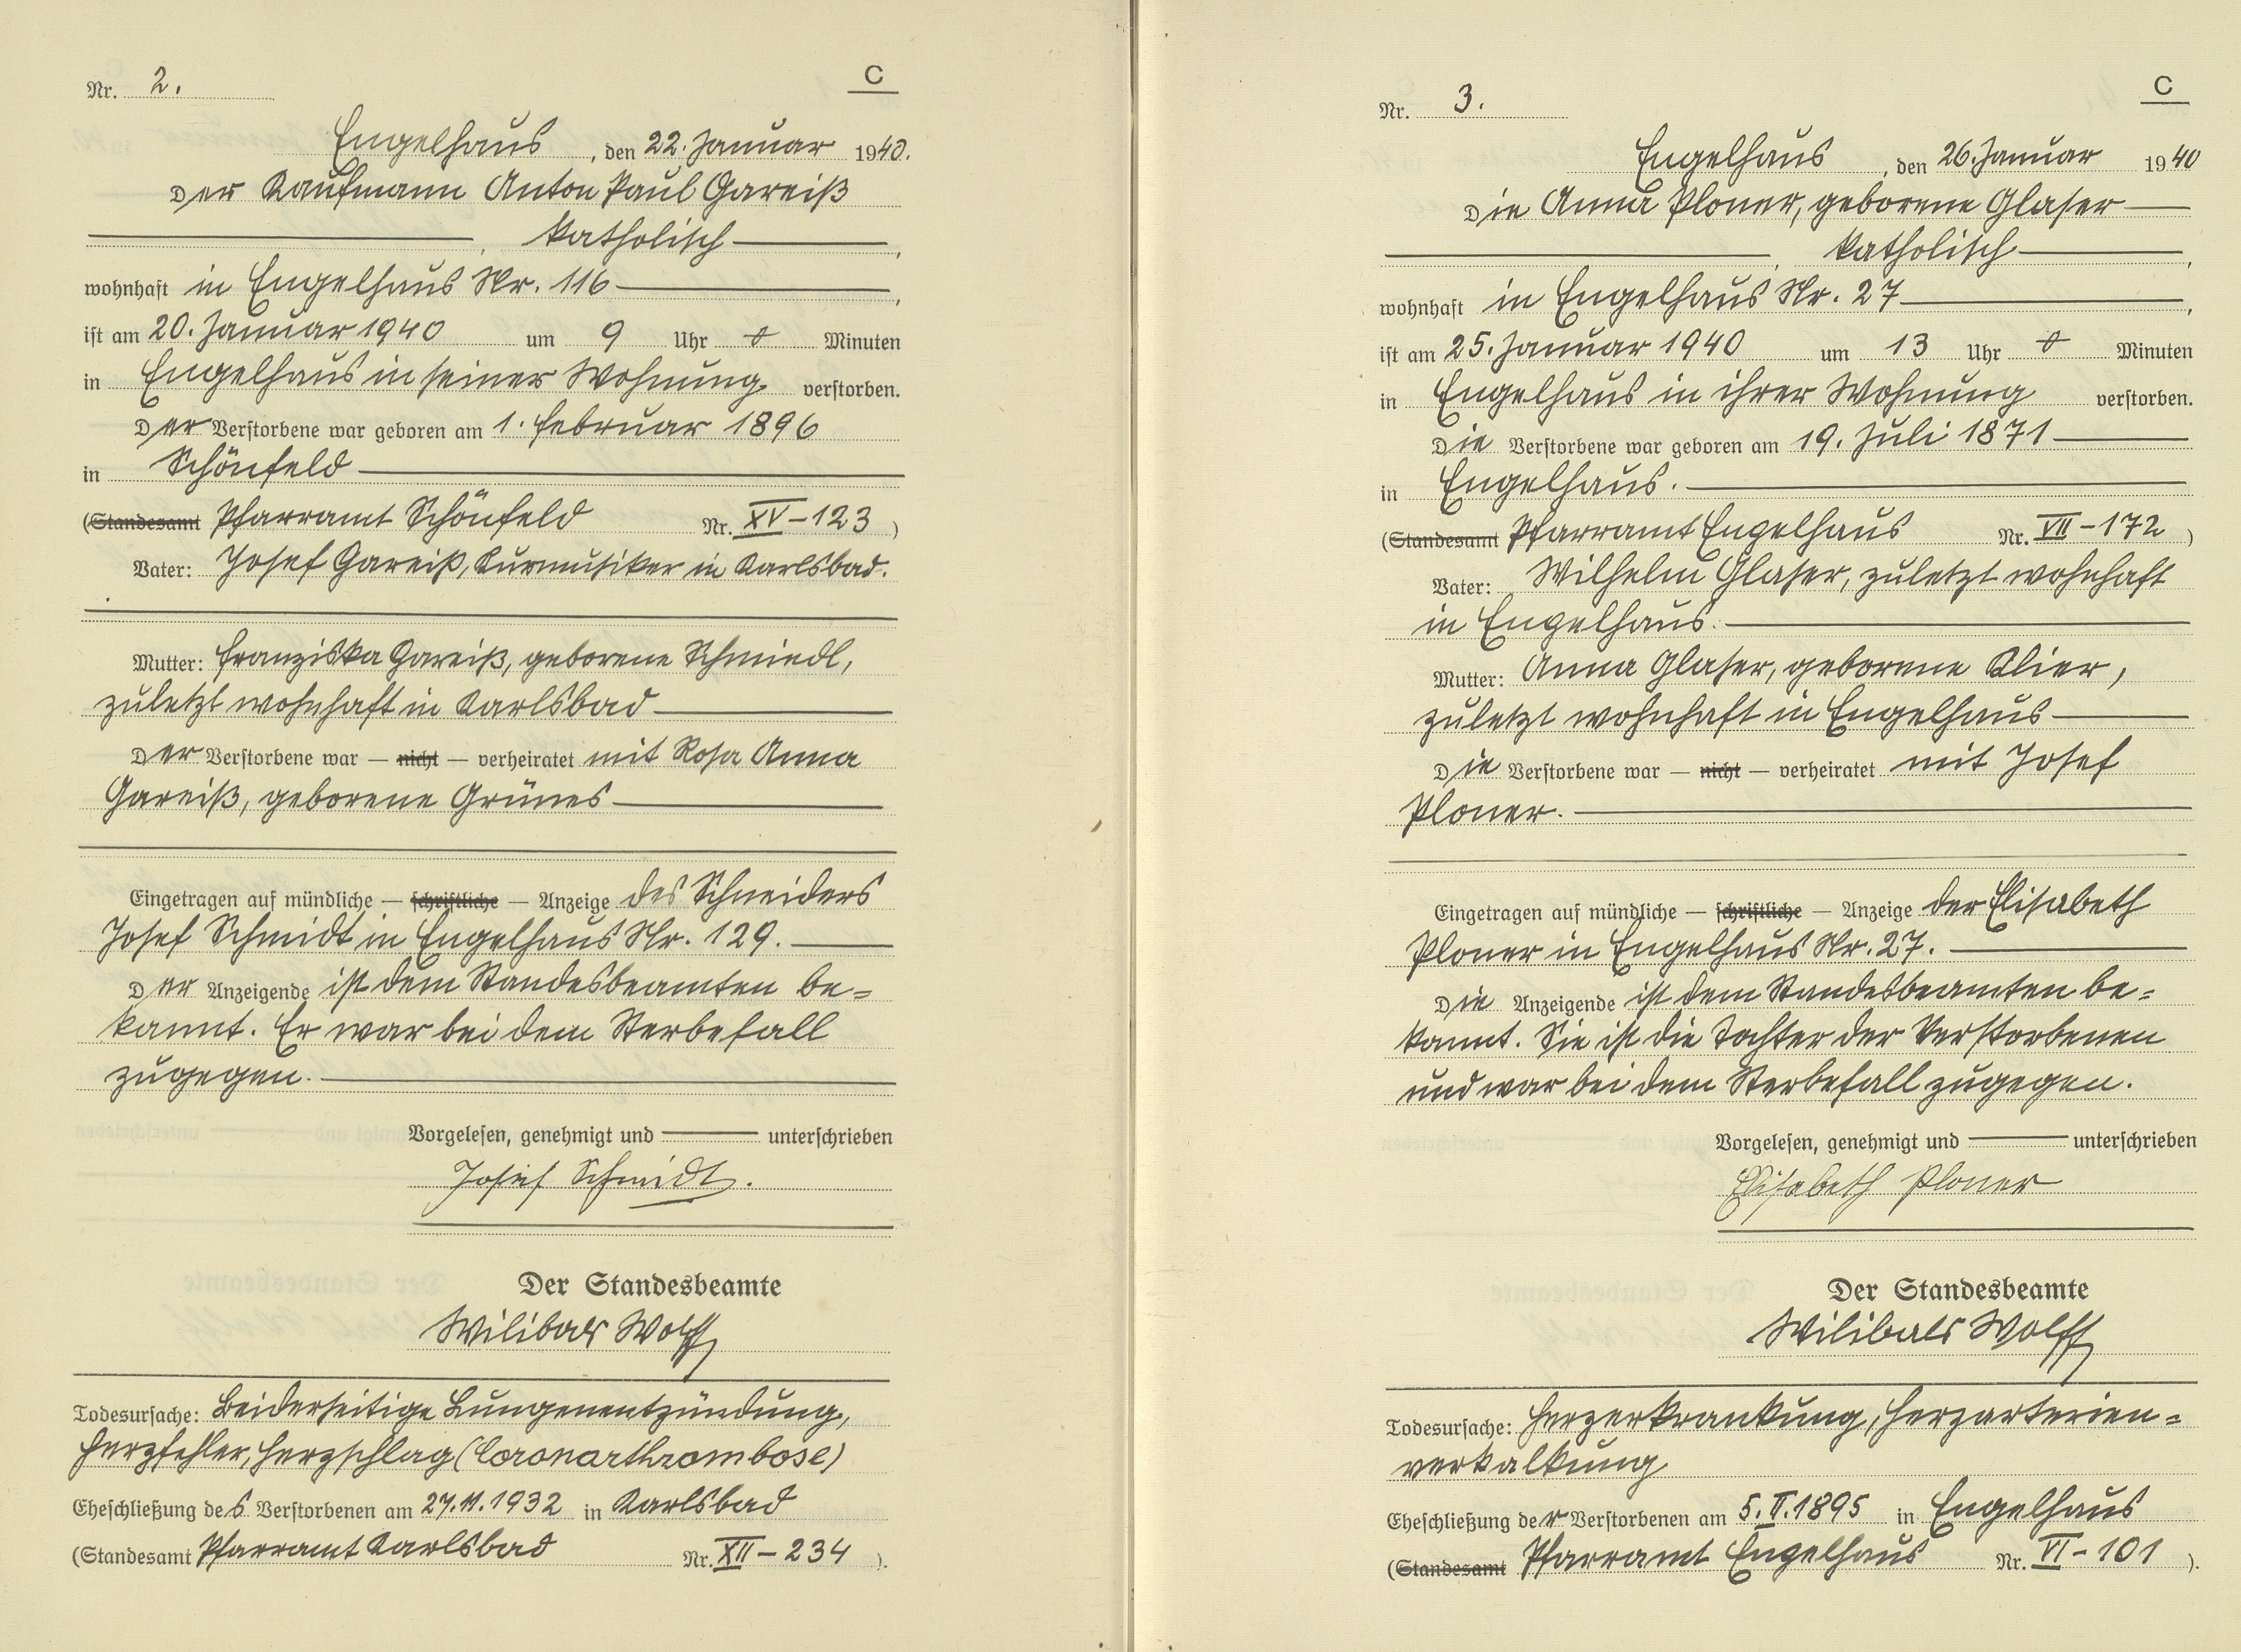 C
Nr. 2.
Engelhaus, den 22. Januar 1940.
Der Kaufmann Anton Paul Gareiß
, katholisch,
wohnhaft in Engelhaus Nr. 116,
ist am 20. Januar 1940 um 9 Uhr 0 Minuten
in Engelhaus in seiner Wohnung verstorben.
Der Verstorbene war geboren am 1. Februar 1896
in Schönfeld
(Standesamt Pfarramt Schönfeld Nr. XV-123)
Vater: Josef Gareiß, Kurmusiker in Karlsbad.
Mutter: Franziska Gareiß, geborene Schmiedl,
zuletzt wohnhaft in Karlsbad
Der Verstorbene war — nicht — verheiratet mit Rosa Anna
Gareiß, geborene Grünes
Eingetragen auf mündliche — schriftliche — Anzeige des Schneiders
Josef Schmidt in Engelhaus Nr. 129.
Der Anzeigende ist dem Standesbeamten be=
kannt. Er war bei dem Sterbefall
zugegen.
Vorgelesen, genehmigt und unterschrieben
Josef Schmidt.
Der Standesbeamte
Wilibald Wolff
Todesursache: Beiderseitige Lungenentzündung,
Herzfehler, Herzschlag (Coronarthrombose)
Eheschließung des Verstorbenen am 27.11.1932 in Karlsbad
(Standesamt Pfarramt Karlsbad Nr. XII-234).
C
Nr. 3.
Engelhaus, den 26. Januar 1940
Die Anna Ploner, geborene Glaser
, katholisch,
wohnhaft in Engelhaus Nr. 27,
ist am 25. Januar 1940 um 13 Uhr 0 Minuten
in Engelhaus in ihrer Wohnung verstorben.
Die Verstorbene war geboren am 19. Juli 1871
in Engelhaus.
(Standesamt Pfarramt Engelhaus Nr. VII-172)
Vater: Wilhelm Glaser, zuletzt wohnhaft
in Engelhaus.
Mutter: Anna Glaser, geborene Klier,
zuletzt wohnhaft in Engelhaus
Die Verstorbene war — nicht — verheiratet mit Josef
Ploner.
Eingetragen auf mündliche — schriftliche — Anzeige der Elisabeth
Ploner in Engelhaus Nr. 27.
Die Anzeigende ist dem Standesbeamten be=
kannt. Sie ist die Tochter der Verstorbenen
und war bei dem Sterbefall zugegen.
Vorgelesen, genehmigt und unterschrieben
Elisabeth Ploner
Der Standesbeamte
Wilibald Wolff
Todesursache: Herzerkrankung, Herzarterien=
verkalkung
Eheschließung der Verstorbenen am 5.II.1895 in Engelhaus
(Standesamt Pfarramt Engelhaus Nr. VI-101).